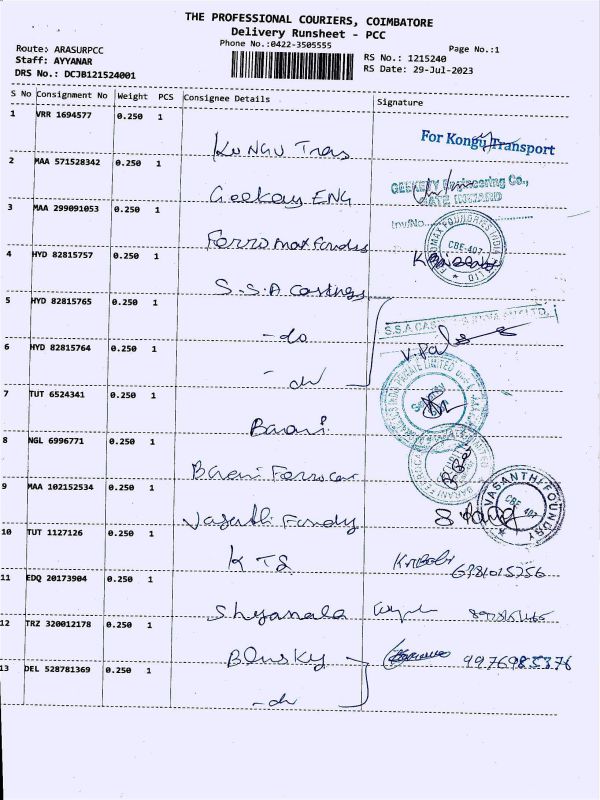 THE PROFESSIONAL COURIERS, COIMBATORE
Delivery Runsheet - PCC
Phone No.:0422-3505555
Page No.:1
Route: ARASURPCC
Staff: AYYANAR
DRS No.: DCJB121524001
RS No.: 1215240
RS Date: 29-Jul-2023
S No Consignment No Weight PCS Consignee Details Signature
1 VRR 1694577 0.250 1
KONGU Trans
For Kongu Transport
2 MAA 571528342 0.250 1
Geekay ENG
GEEKEY Engineering Co.,
GATE INWARD
Inv/No.
3 MAA 299091053 0.250 1
FERROMAX FOUNDRIES INDIA
CBE-407
4 HYD 82815757 0.250 1
S.S.A Castings
5 HYD 82815765 0.250 1
-do
S.S.A CAS
V. Pal
6 HYD 82815764 0.250 1
7 TUT 6524341 0.250 1
Barani
8 NGL 6996771 0.250 1
Barani Ferrocar
9 MAA 102152534 0.250 1
VASANTHI FOUNDRY
CBE 407
10 TUT 1127126 0.250 1
K TS
11 EDQ 20173904 0.250 1
Shyamala
12 TRZ 320012178 0.250 1
Blusky
13 DEL 528781369 0.250 1